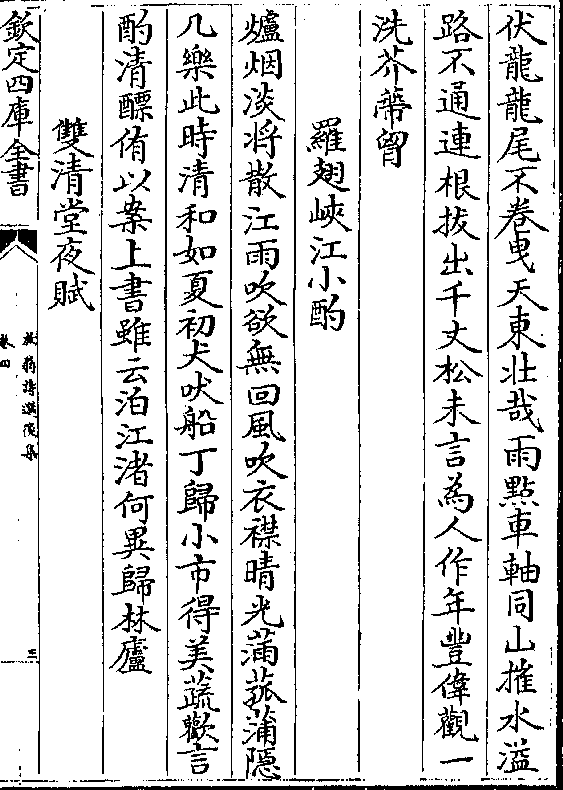 伏龍龍尾不卷曳天東壯哉雨點車軸同山摧水溢
路不通連根拔出千丈松未言為人作年豐偉觀一
洗芥蔕胷
羅翅峽江小酌
爐烟淡將散江雨吹欲無回風吹衣襟晴光滿菰蒲隱
几樂此時清和如夏初犬吠船丁歸小市得美蔬歡言
酌清醥侑以案上書雖云泊江渚何異歸林廬
雙清堂夜賦
欽定四庫全書
放翁詩選後集
卷四
三